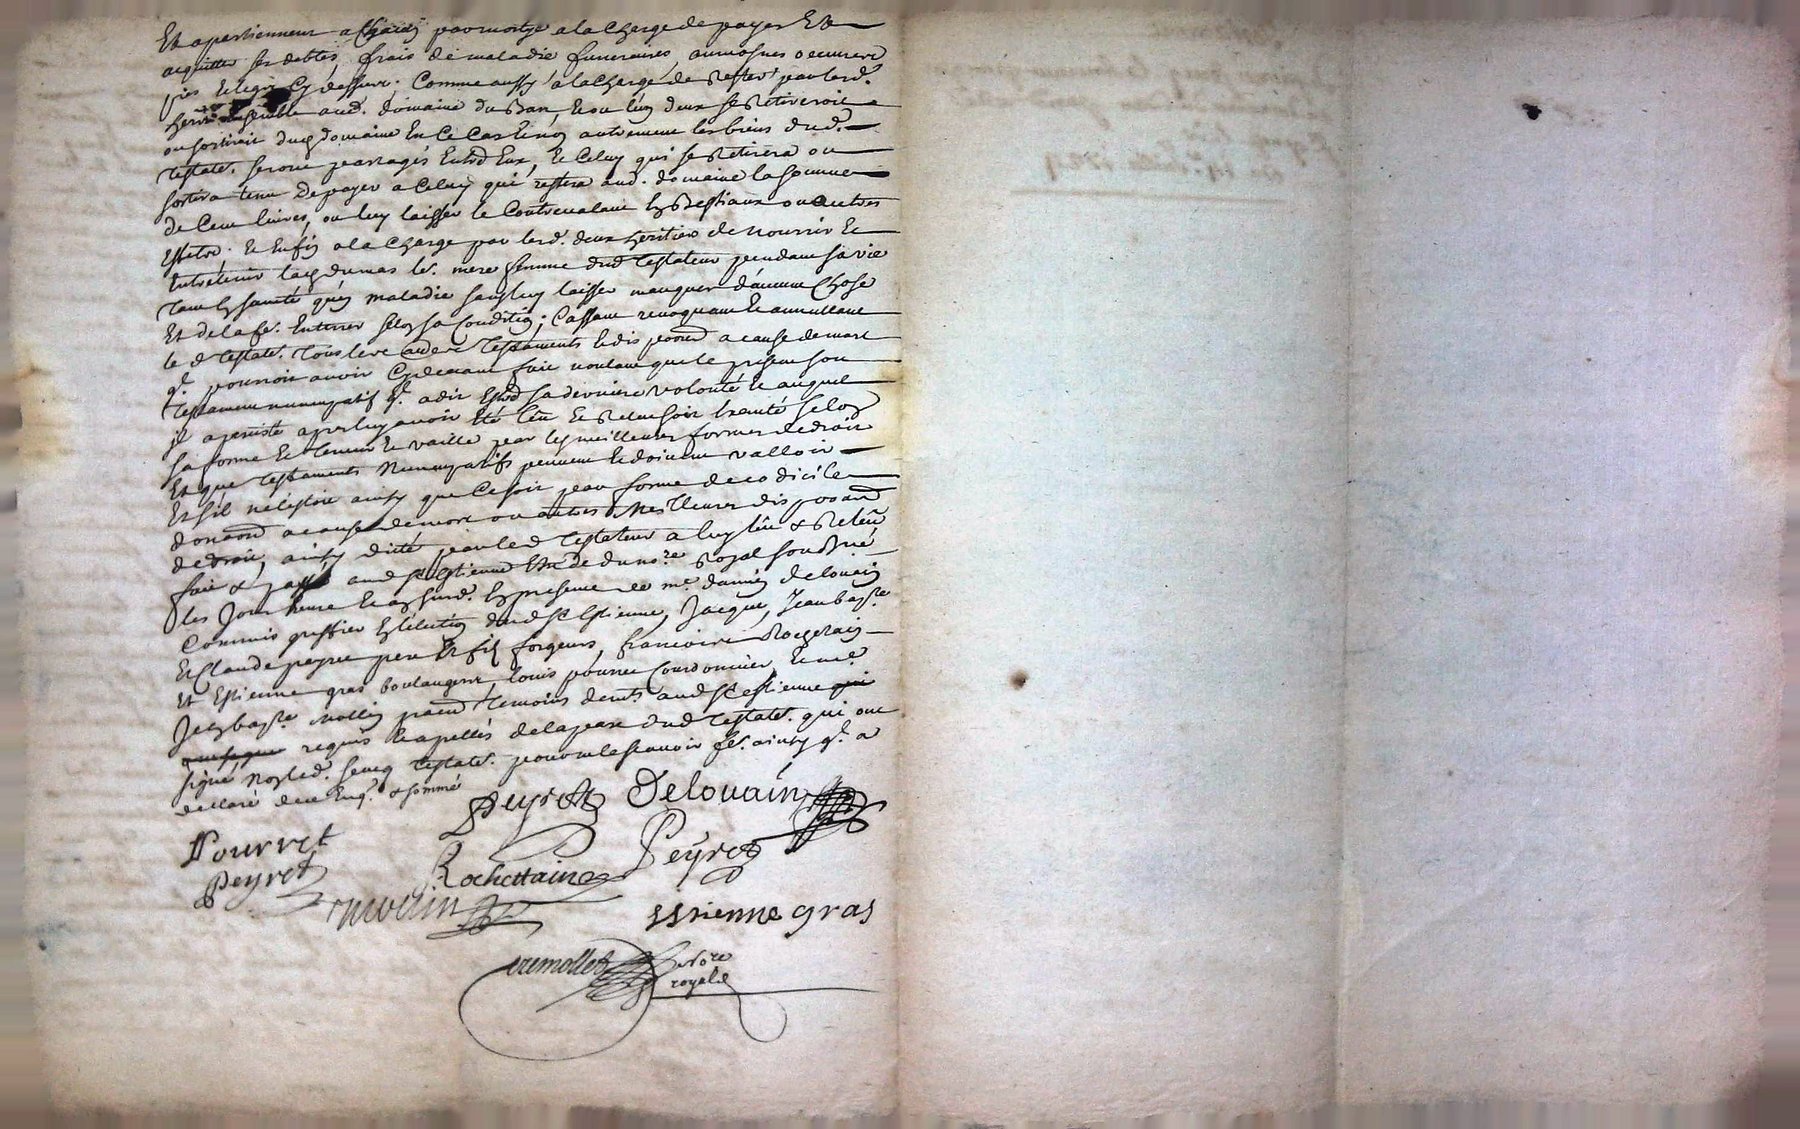 Et apartiennent a Chacun par moitye a la charge de payer Et
acquitter ses debtes, frais de maladie funeraires, aumosnes oeuvres
pies Et legs Cy dessus; Comme aussy a la charge de Rester par lesd.
heritiers ensemble aud. domaine du Ban, Et ou lun deux se Retireroit
ou sortiroit dud domaine En Ce Cas Et non autrement les biens dud.
testatr. seront partagés Entre Eux, Et Celuy qui se Retirera ou
sortira tenu De payer a Celuy qui restera aud. domaine la somme
de Cent livres, ou luy laisser le Contrevalant En Bestiaux ou autres
Effetcs. Et Enfin a la Charge par lesd. deux heritiers de nourrir Et
Entretenir lad dumas le. mere femme dud Testateur pendant sa vie
tant En santé qu'en maladie sans luy laisser manquer d'aucune Chose
Et de la fe. Enterrer selon sa Condition; Cassant revoquant Et annullant
le d Testatr. tous les autres Testaments Et dis poons a cause de mort
ql. pourroit avoir Cy devant fait voulant que le present son
Testament nuncupatif ql. a dit Estre sa derniere volonté Et auquel
il a persisté apres luy avoir Eté leu Et Releu soit Executé selon
sa forme Et teneur Et vaille par les meilleures formes de droit
Et que testaments Nuncupatifs peuvent Et doivent valloir
Et s'il n'estoit ainsy que Ce soit par forme de codicile
donaon a cause de mort ou autres Meilleures dis posaon
de droit, ainsy dicté par led Testateur a luy leu & Releu
fait & passé aud St Estienne Etude du nore. Royal soubsné
les Jour heure Et an susd. En presence de me. damien delouain
Commis greffier En lelection dud St Estienne, Jacque, Jean bapte
Et Claude peyret pere Et fils forgeurs, francois Rochetain
Et Estienne gras boulangers, louis pourret Cordonnier Et me.
Jean bapte mollin praen temoins demts. aud St estienne
requis Et apellés de la part dud Testatr. qui ont
signé Non led. Testatr. pour ne le scavoir fe. ainsy ql. a
declaré de ce Enq. & sommé
Peyret Delouain
Pourret
Rochettain Peyret
Peyret
mollin
Estienne gras
Nore
royal